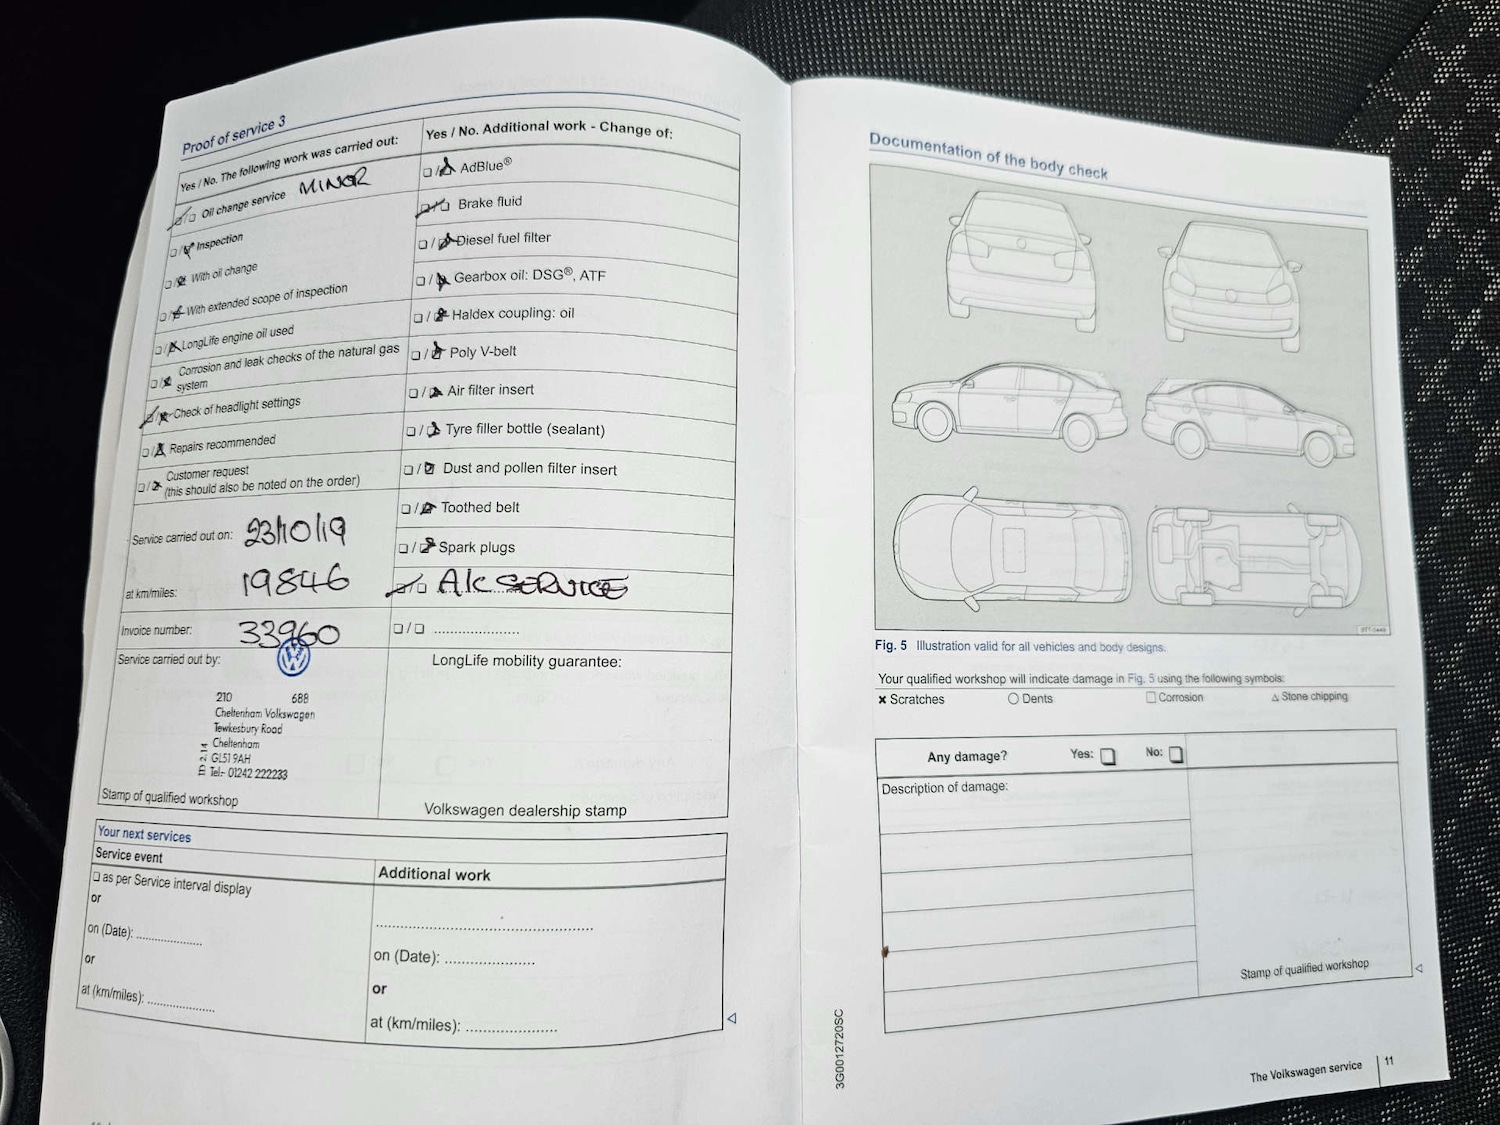 Proof of service 3
Yes / No. The following work was carried out:
Oil change service MINOR
Inspection
With oil change
With extended scope of inspection
LongLife engine oil used
Corrosion and leak checks of the natural gas
system
Check of headlight settings
Repairs recommended
Customer request
(this should also be noted on the order)
Service carried out on: 23/10/19
at km/miles: 19846
Invoice number: 33960
Service carried out by:
210 688
Cheltenham Volkswagen
Tewkesbury Road
Cheltenham
GL51 9AH
Tel:- 01242 222233
Stamp of qualified workshop
Yes / No. Additional work - Change of:
AdBlue®
Brake fluid
Diesel fuel filter
Gearbox oil: DSG®, ATF
Haldex coupling: oil
Poly V-belt
Air filter insert
Tyre filler bottle (sealant)
Dust and pollen filter insert
Toothed belt
Spark plugs
A/C SERVICE
LongLife mobility guarantee:
Volkswagen dealership stamp
Your next services
Service event
as per Service interval display
or
on (Date): ....................
or
at (km/miles): ....................
Additional work
on (Date): ....................
or
at (km/miles): ....................
Documentation of the body check
Fig. 5 Illustration valid for all vehicles and body designs.
Your qualified workshop will indicate damage in Fig. 5 using the following symbols:
Scratches Dents Corrosion Stone chipping
Any damage? Yes: No:
Description of damage:
Stamp of qualified workshop
3G0012720SC
The Volkswagen service 11